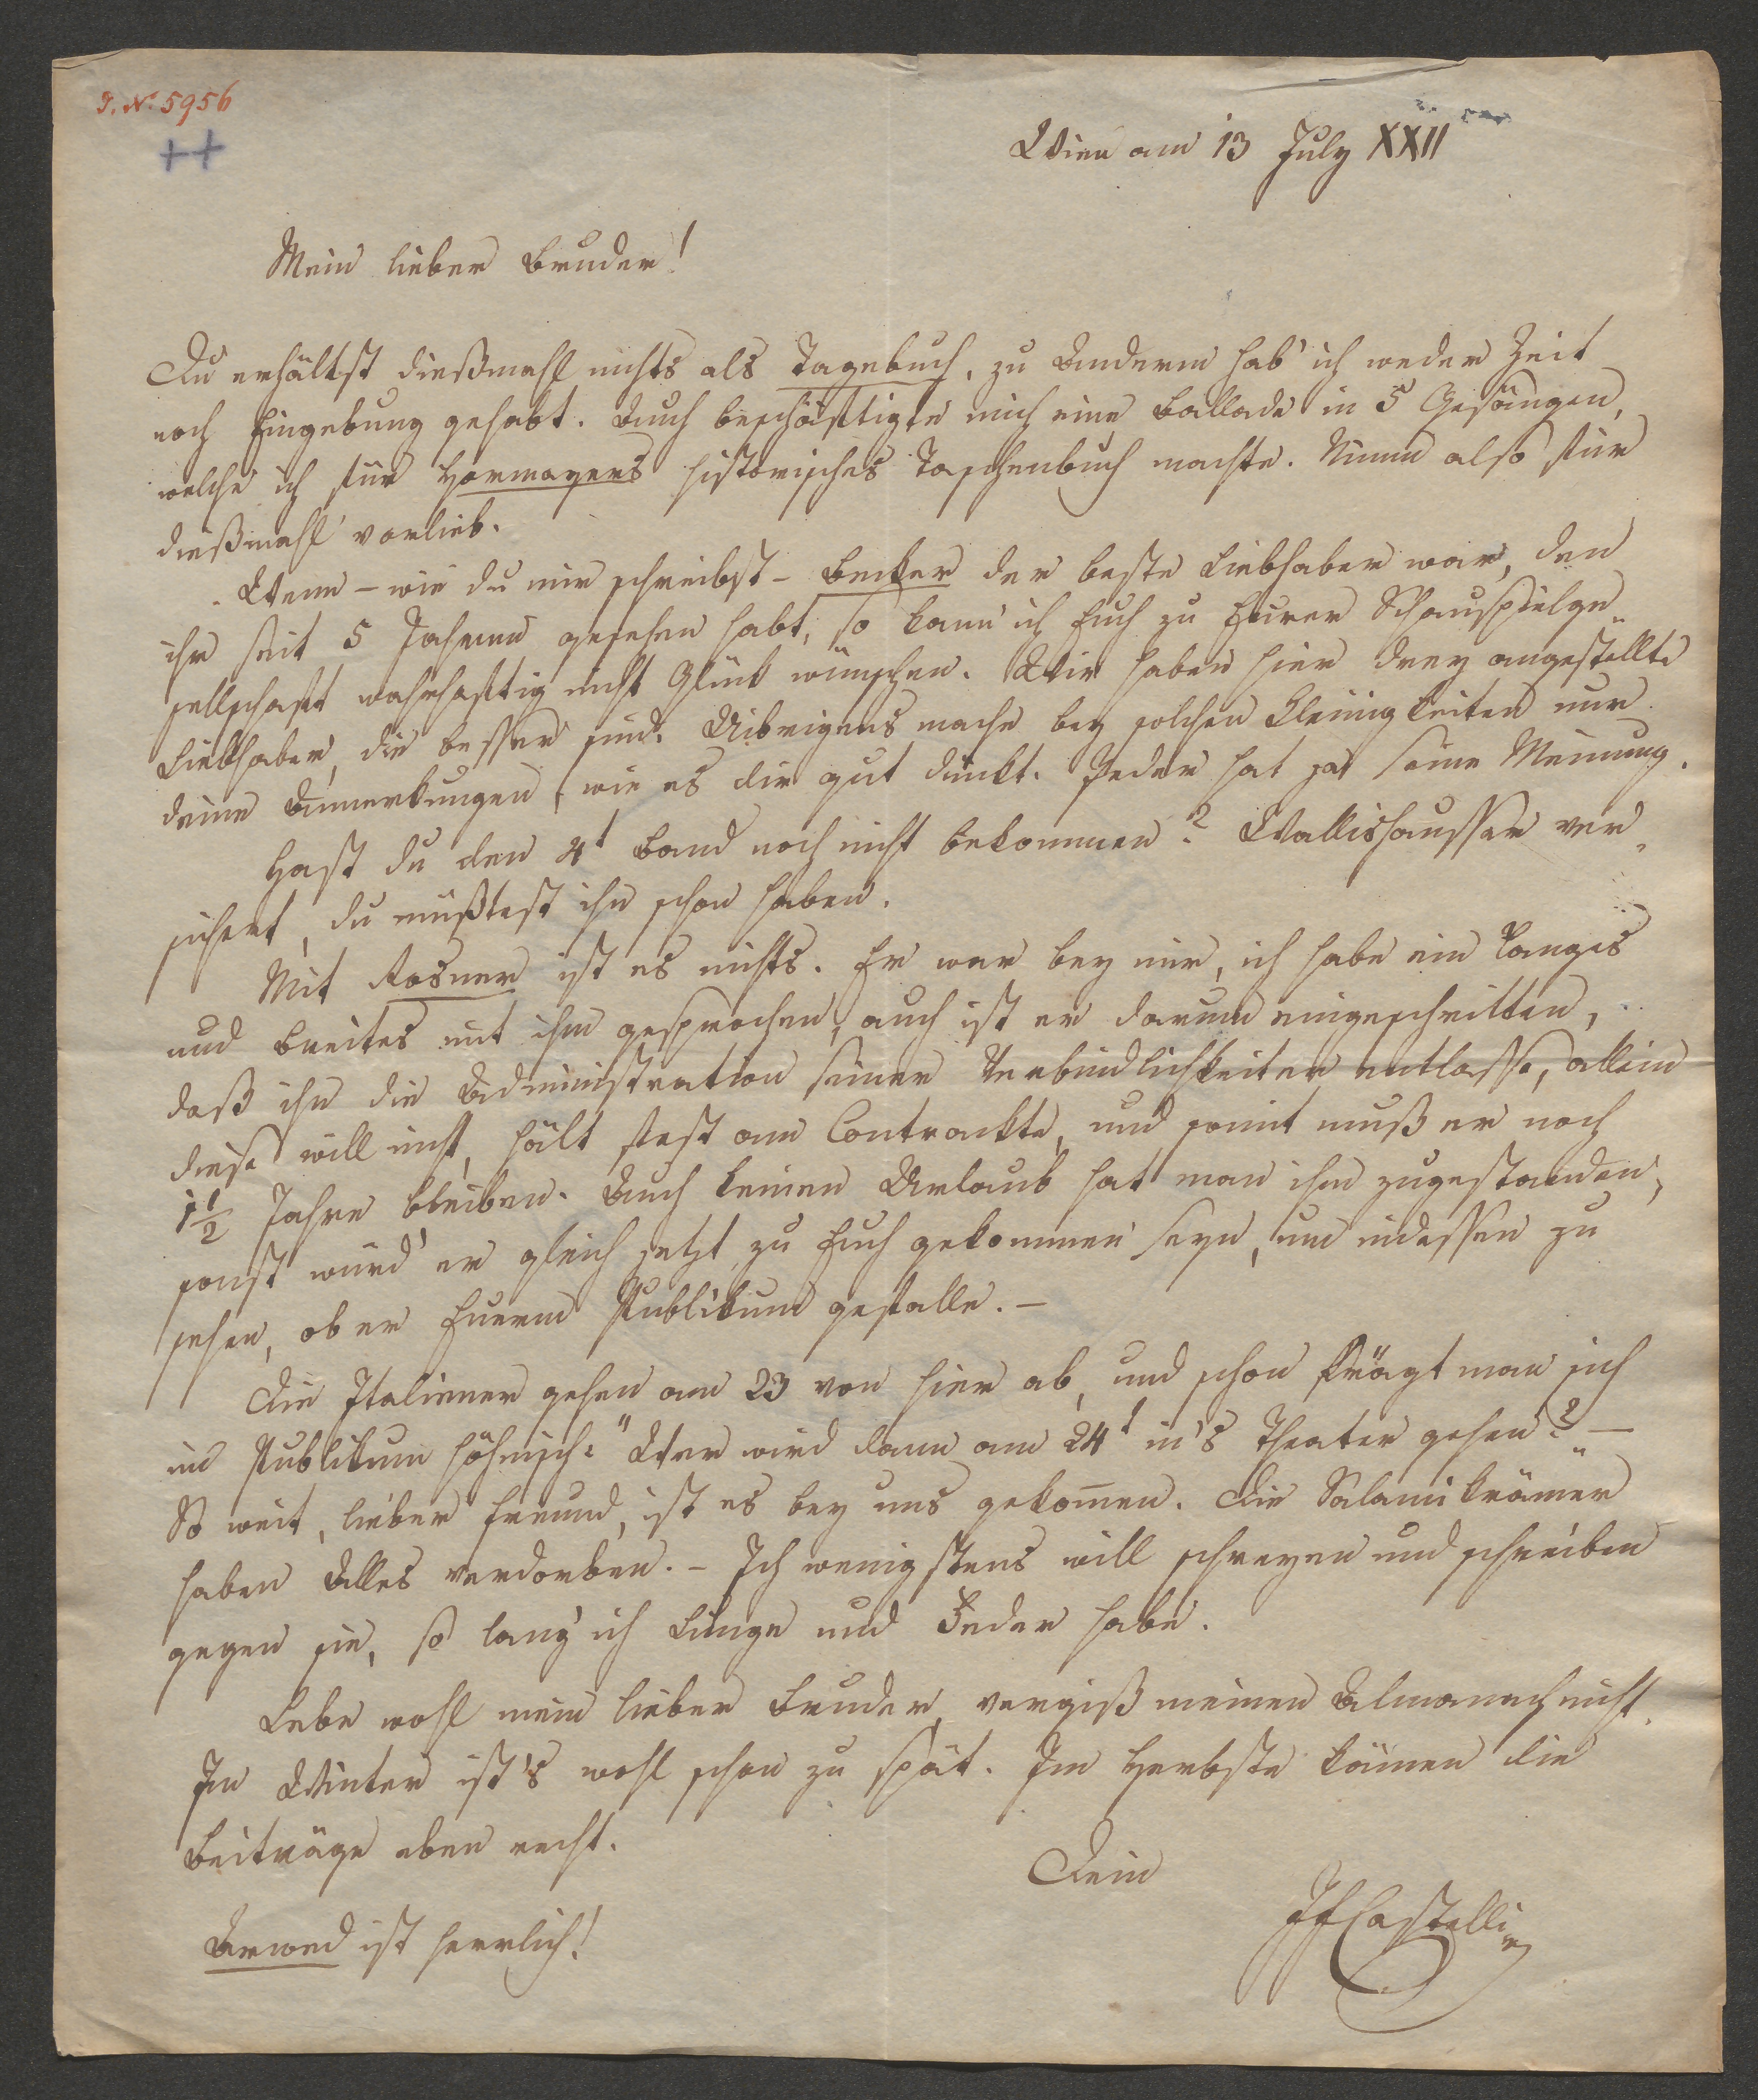 I. N. 5956
++
Wien am 13 July XXII
Mein lieber Bruder!
Du erhältst dießmahl nichts als Tagebuch, zu Anderm hab' ich weder Zeit
noch Eingebung gehabt. Auch beschäftigte mich eine Ballade in 5 Gesängen,
welche ich für Hormayers historisches Taschenbuch machte. Nimm also für
dießmahl vorlieb.
Wenn – wie du mir schreibst – Becker der beste Liebhaber war, den
ihr seit 5 Jahren gesehen habt, so kann ich Euch zu Eurer Schauspielge„
sellschaft wahrhaftig nicht Glück wünschen. Wir haben hier drey angestellte
Liebhaber, die besser sind. Uibrigens mache bey solchen Kleinigkeiten nur
deine Anmerkungen, wie es dir gut dünkt. Jeder hat ja seine Meinung.
Hast du den 4t Band noch nicht bekommen? Wallishausser ver„
sichert, du müßtest ihn schon haben.
Mit Rosner ist es nichts. Er war bey mir, ich habe ein Langes
und Breites mit ihm gesprochen, auch ist er darum eingeschritten,
daß ihn die Administration seiner Verbindlichkeiten entlasse, allein
diese will nicht, hält fest am Contrackte, und somit muß er noch
1 1/2 Jahre bleiben. Auch keinen Urlaub hat man ihm zugestanden,
sonst würd' er gleich jetzt zu Euch gekommen seyn, um indessen zu
sehen, ob er Euerm Publikum gefalle. –
Die Italiener gehen am 23 von hier ab, und schon frägt man sich
im Publikum höhnisch: "Wer wird dann am 24t in's Theater gehen?" –
So weit, lieber Freund, ist es bey uns gekom̄en. Die Salamikrämer
haben Alles verdorben. – Ich wenigstens will schreyen und schreiben
gegen sie, so lang' ich Lunge und Feder habe.
Lebe wohl mein lieber Bruder, vergiß meinen Almanach nicht.
Im Winter ist's wohl schon zu spät. Im Herbste kämen die
Beiträge eben recht.
Dein
JFCastelli
Arwed ist herrlich!